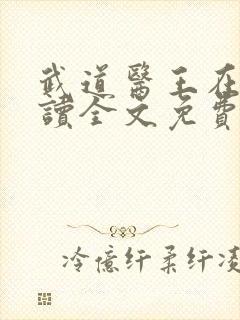 武道醫王在
讀全文免費
冷億纤柔纤凌